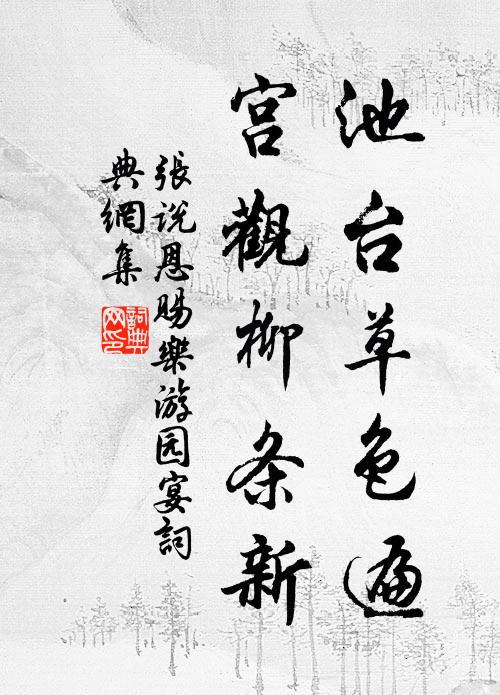 池台草色遍
宫觀柳条新
張说恩賜樂游园宴詞
典網集
詞典
网印